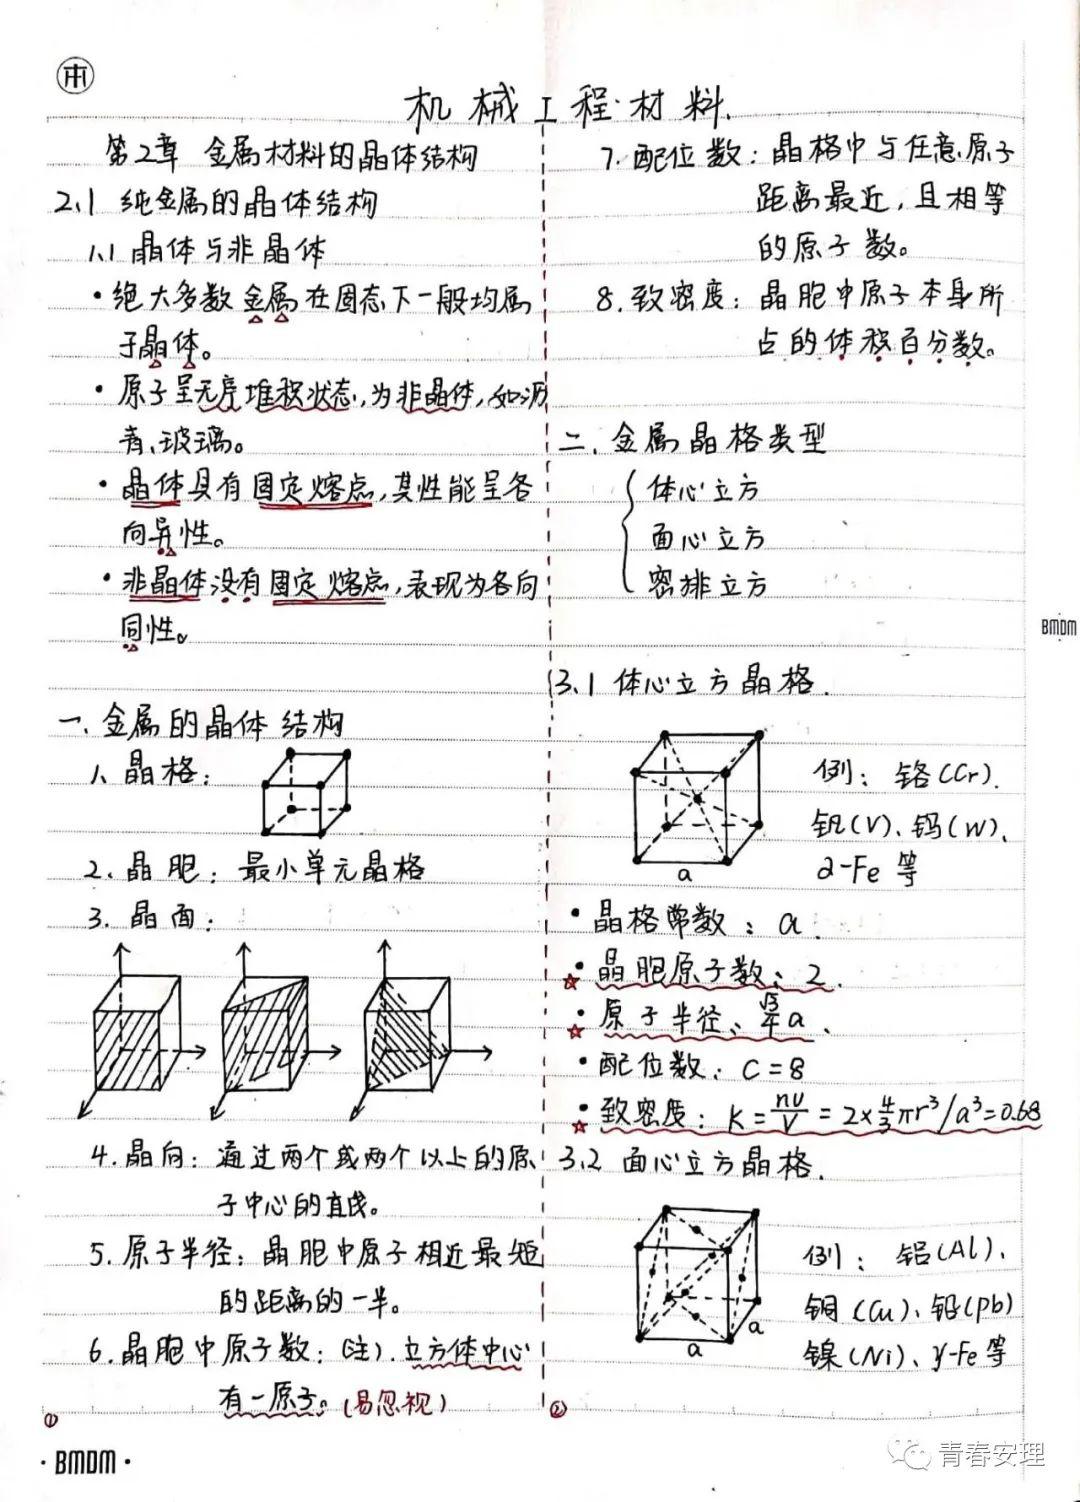 机械工程材料.
第2章 金属材料的晶体结构
2.1 纯金属的晶体结构
1.1 晶体与非晶体
·绝大多数金属在固态下一般均属
于晶体。
·原子呈无序堆积状态,为非晶体,如沥
青、玻璃。
·晶体具有固定熔点,其性能呈各
向异性。
·非晶体没有固定熔点,表现为各向
同性。
一.金属的晶体结构
1、晶格:
2.晶胞:最小单元晶格
3.晶面:
4.晶向:通过两个或两个以上的原
子中心的直线。
5.原子半径:晶胞中原子相近最短
的距离的一半。
6.晶胞中原子数:(注).立方体中心
有一原子。(易忽视)
①
·BMDM·
7.配位数:晶格中与任意原子
距离最近,且相等
的原子数。
8.致密度:晶胞中原子本身所
占的体积百分数。
二.金属晶格类型
体心立方
面心立方
密排立方
BMDM
3.1 体心立方晶格.
例:铬(Cr).
钒(V)、钨(W)、
α-Fe 等
a
·晶格常数:a.
·晶胞原子数:2.
·原子半径:√3/4 a.
·配位数:C=8
·致密度:K=nv/V=2×4/3πr³/a³=0.68
3.2 面心立方晶格.
例:铝(Al)、
铜(Cu)、铅(Pb)
镍(Ni)、γ-Fe等
a
a
②
青春安理